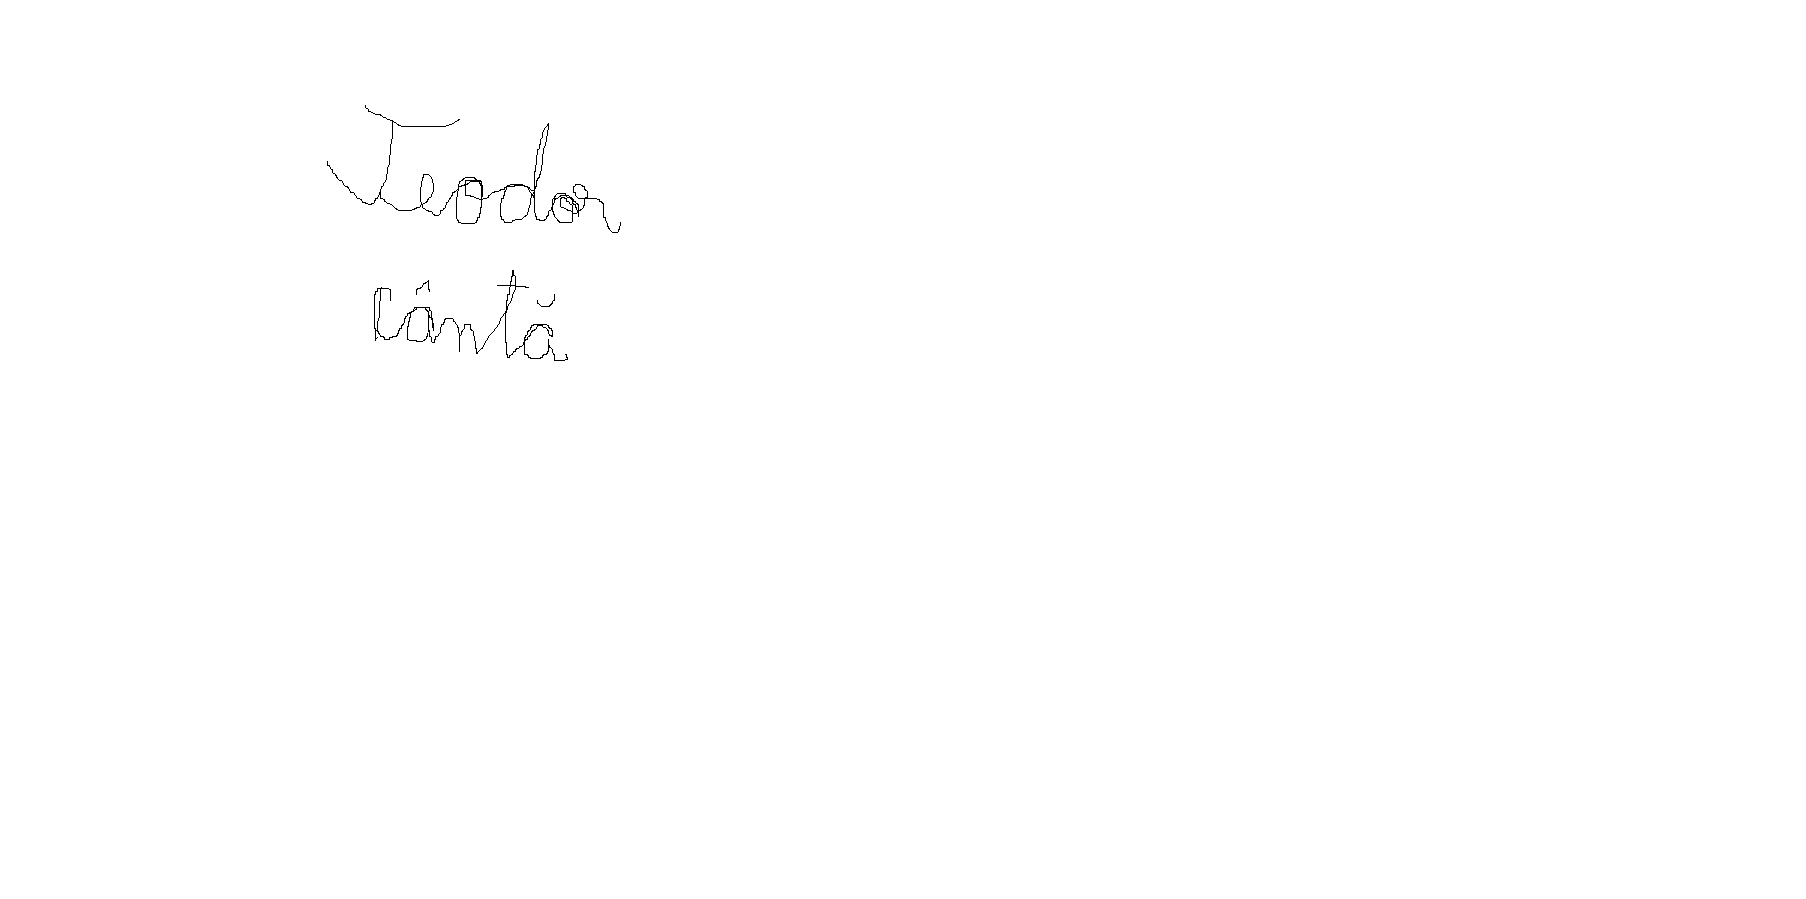 Teodor
cântă